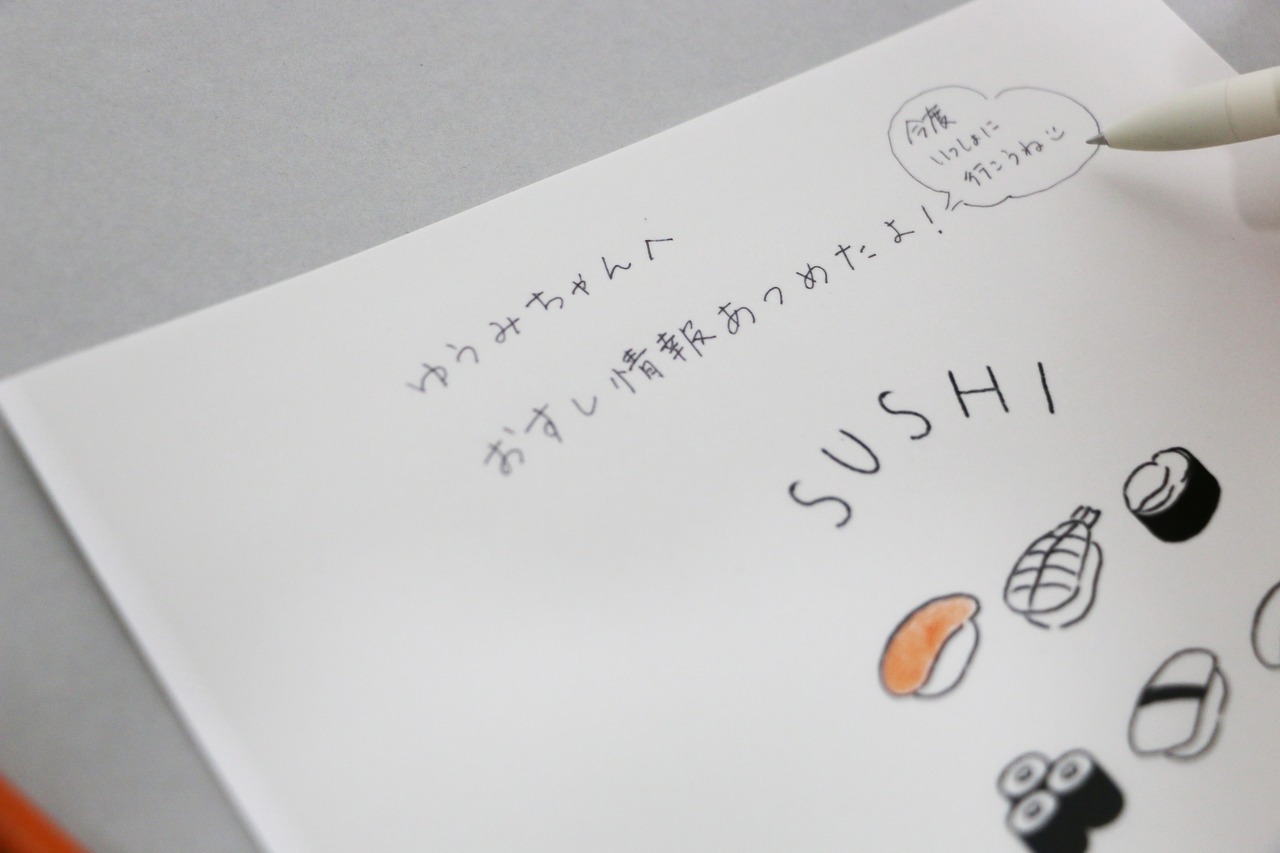 今度
いっしょに
行こうね
ゆうみちゃんへ
おすし情報あつめたよ！
SUSHI